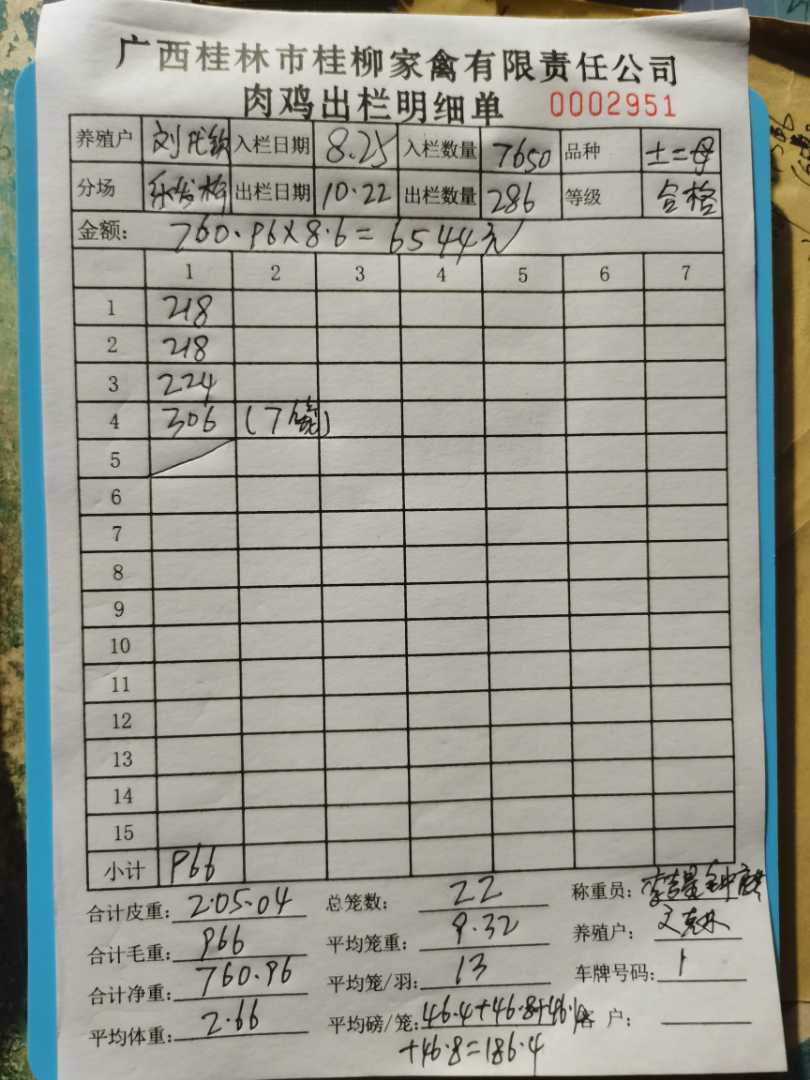 广西桂林市桂柳家禽有限责任公司
肉鸡出栏明细单 0002951
养殖户 刘 入栏日期 8.25 入栏数量 7650 品种 土二母
分场 出栏日期 10.22 出栏数量 286 等级 合格
金额: 760.96×8.6=6544元
1 2 3 4 5 6 7
1 218
2 218
3 224
4 306 (7笼)
5
6
7
8
9
10
11
12
13
14
15
小计 966
合计皮重: 2.05.04 总笼数: 22 称重员:
合计毛重: 966 平均笼重: 9.32 养殖户:
合计净重: 760.96 平均笼/羽: 13 车牌号码: 1
平均体重: 2.66 平均磅/笼: 46.4+46.8+46.4 客户:
+46.8=186.4